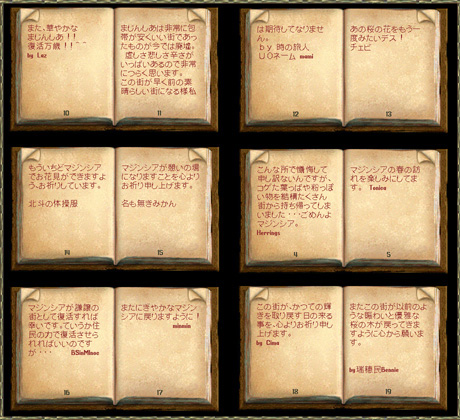 また、華やかな
まじんしあ！！
復活万歳！！＾＾
by Luz
10
まじんしあは非常に包
帯が安くいい街であっ
たものが今では廃墟。
虚しさ悲しさ辛さが
いっぱいあるので非常
につらく思います。
この街が早く前の素
晴らしい街になる様私
11
は期待してなりませ
ん。
ｂｙ 時の旅人
ＵＯネーム mami
12
あの桜の花をもう一
度みたいデス！
チェビ
13
もういちどマジンシア
でお花見ができますよ
う、お祈りしています。
北斗の体操服
14
マジンシアが憩いの場
になりますことを心より
お祈り申し上げます。
名も無きみかん
15
こんな所で懺悔して
申し訳ないんですが、
コゲた葉っぱや粉っぽ
い物を結構たくさん
街から持ち帰ってしま
いました・・・ごめんよ
マジンシア。
Herrings
4
マジンシアの春の訪
れを楽しみにしてま
す。 Tonica
5
マジンシアが謙譲の
街として復活すれば
幸いです。ていうか住
民の力で復活させら
れればいいのです
が・・・
16
またにぎやかなマジン
シアに戻りますように！
minmin
17
この街が、かつての輝
きを取り戻す日の来る
事を、心よりお祈り申し
上げます。
by Cima
18
またこの街が以前のよ
うな賑わいと優雅な
桜の木が戻ってきま
すように心から願いま
す。
by瑞穂民Bennie
19